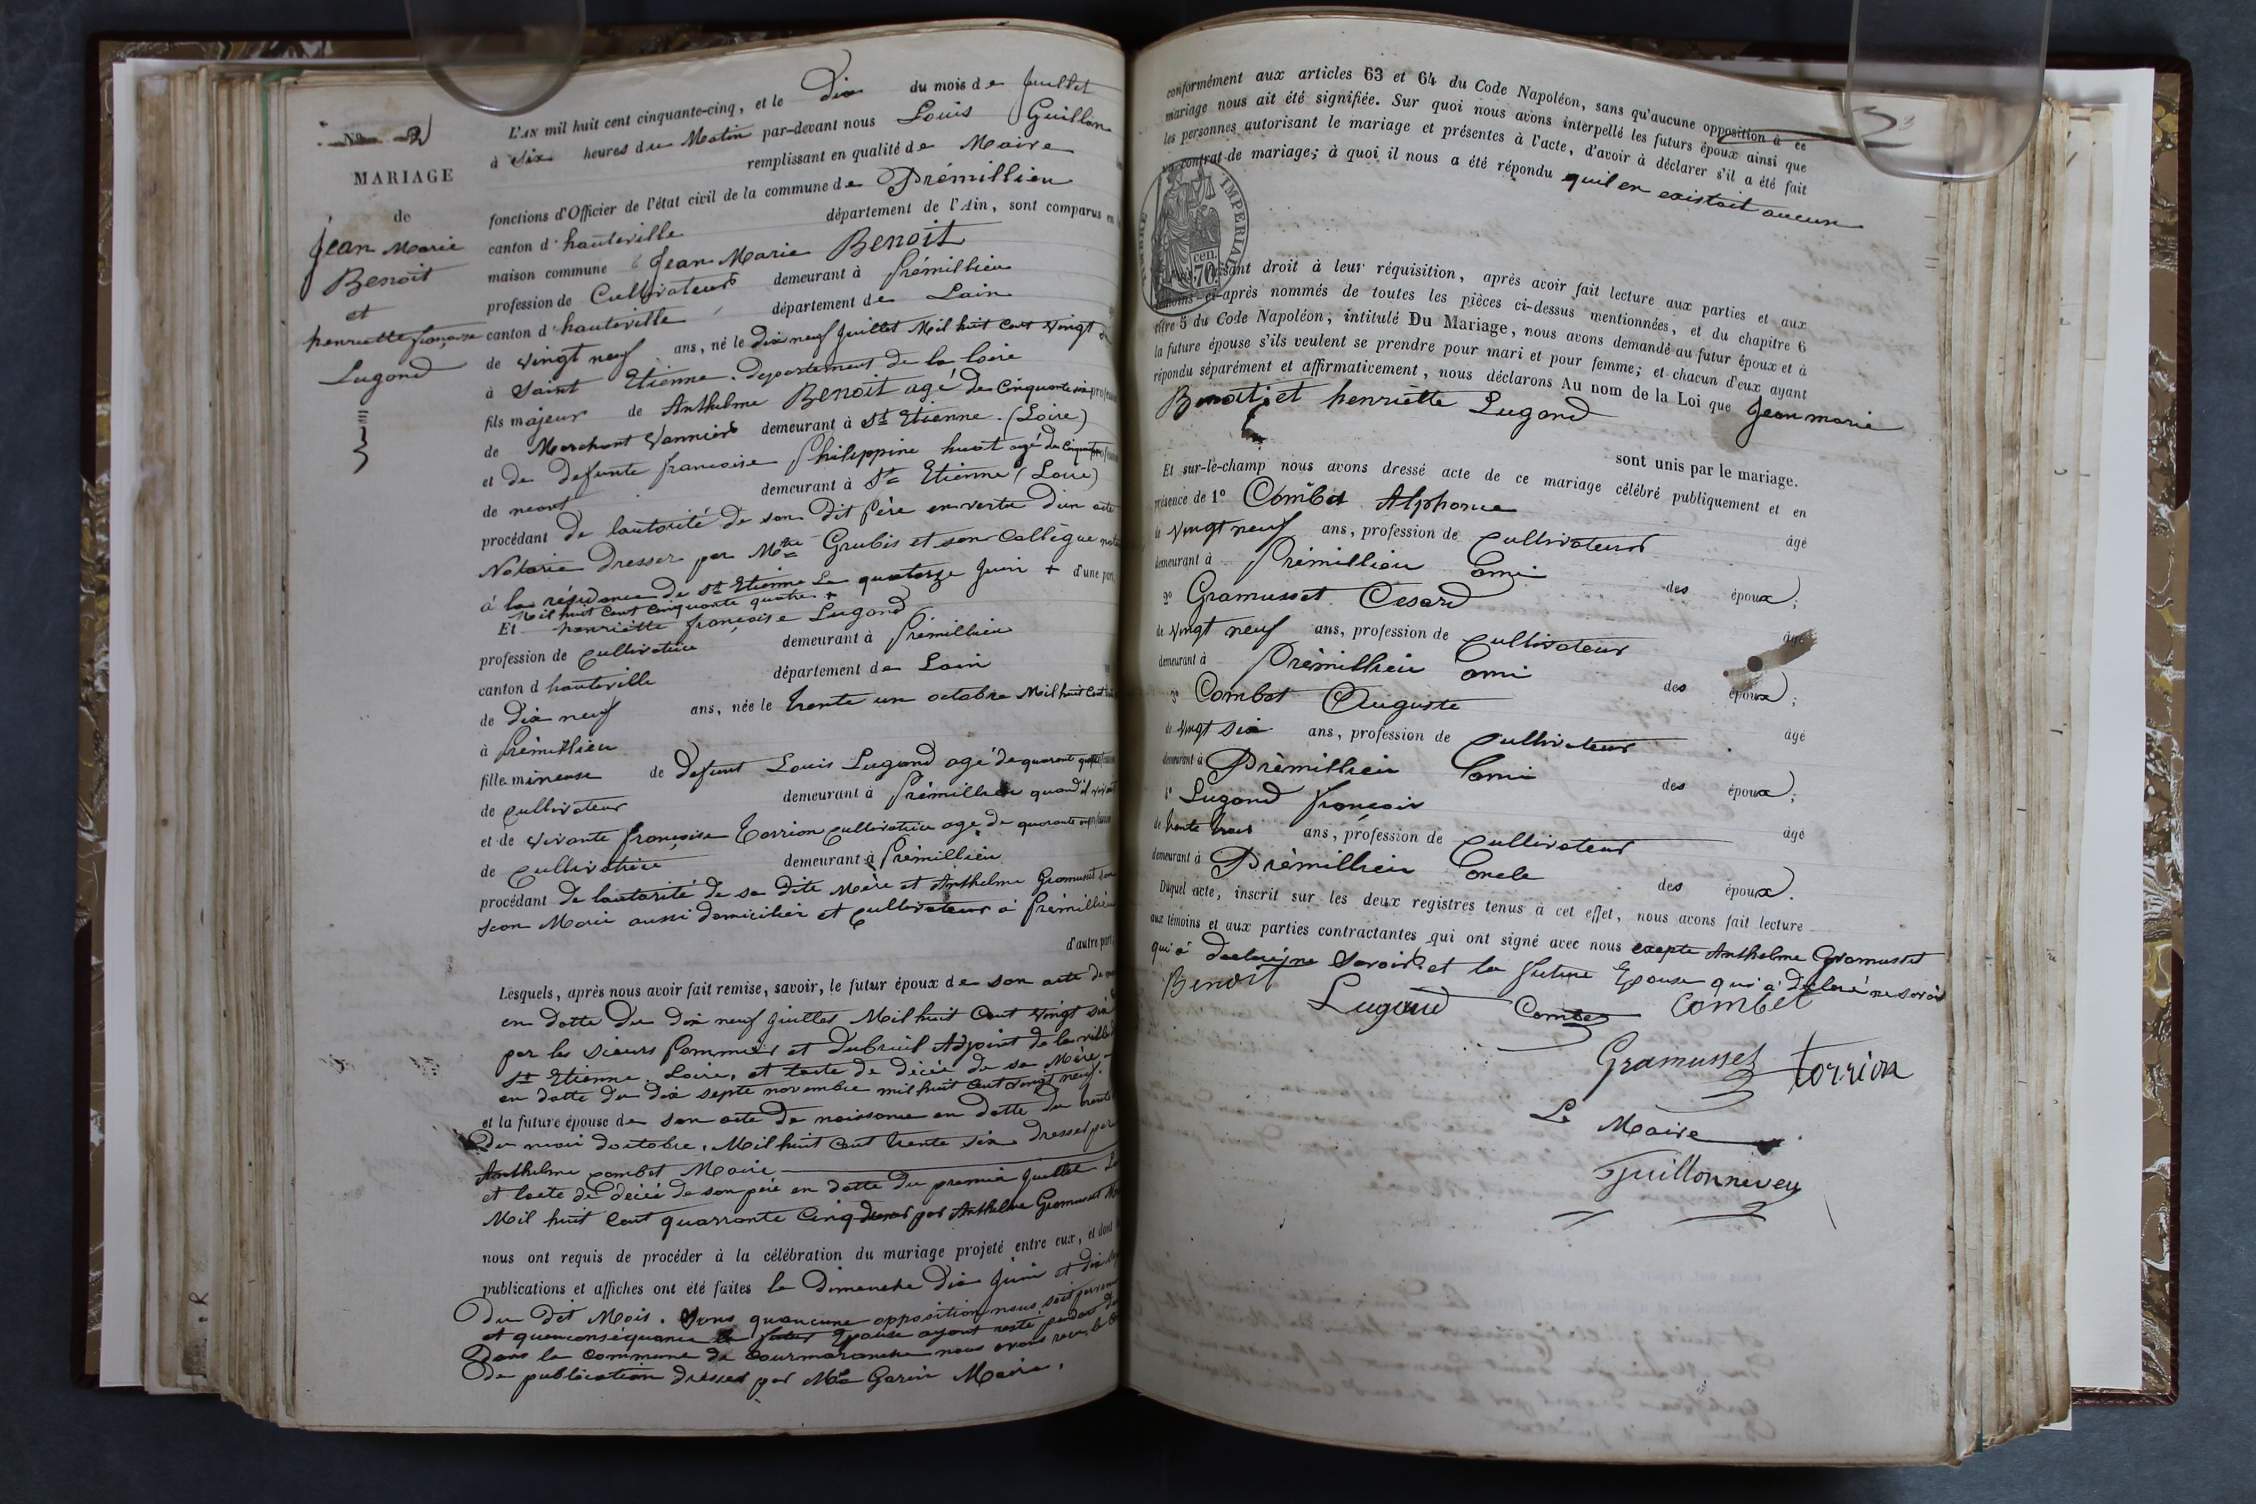 No 2
MARIAGE
de
Jean Marie
Benoit
et
henriette françoise
Lugand
L'AN mil huit cent cinquante-cinq, et le Dix du mois de Juillet
à Six heures du Matin par-devant nous Louis Guillon
remplissant en qualité de Maire
fonctions d'Officier de l'état civil de la commune de Prémillieu
canton d'hauteville département de l'Ain, sont comparus en
maison commune Jean Marie BENOIT
profession de Cultivateur demeurant à Prémillieu
canton d'hauteville département de Lain
de vingt neuf ans, né le dix neuf Juillet Mil huit cent vingt
à Saint Etienne. Departement de la loire
fils majeur de Anthelme BENOIT agé de Cinquante six
de Marchant Vannier demeurant à St Etienne. (Loire)
et de defunte francoise Philippine huot agé de
de neant demeurant à St Etienne (Loire)
procédant de lautorité de son Dit Père en vertu d'un acte
Notarié Dresser par Mtre Grubis et son Collègue
à la résidence de St Etienne Le quatorze Juin + d'une part,
Mil huit Cent Cinquante quatre +
Et henriétte françoise Lugand
profession de cultivatrice demeurant à Prémillieu
canton d hauteville département de Lain
de Dix neuf ans, née le trente un octobre Mil huit Cent
à Prémillieu
fille mineuse de defunt Louis Lugand agé de quarant
de cultivateur demeurant à Prémillieu quand il vivait
et de vivante françoise Torrion cultivatrice age de quarante
de cultivatrice demeurant à Prémillieu
procédant de lautorité de sa dite Mère et Anthelme Gramusset
son Mari aussi domicilier et Cultivateur à Prémillieu
d'autre part,
Lesquels, après nous avoir fait remise, savoir, le futur époux de son acte de
en datte du dix neuf Juillet Mil huit Cent vingt six
par les sieurs Pommier et dubruil Adjoint de la ville
St Etienne. Loire, et lacte de décée de sa Mère
en datte du dix septe novembre mil huit Cent vingt neuf.
et la future épouse de son acte de naissance en datte du trente
Du mois doctobre. Mil huit Cent trente six Dresser par
Anthelme Combet Maire
et lacte de décée de son père en datte du premier Juillet
Mil huit Cent quarrante Cinq par Anthelme Gramusset
nous ont requis de procéder à la célébration du mariage projeté entre eux, et dont
publications et affiches ont été faites le Dimanche Dix Juin et dix
Du Dit Mois. Sans quaucune opposition nous soit parvenu
et quenconséquance futur Epouse ayant resté pendant
Dans la Commune de Courmaranche nous avons recu
de publication dresser par Mr Garin Maire.
conformément aux articles 63 et 64 du Code Napoléon, sans qu'aucune opposition à ce
mariage nous ait été signifiée. Sur quoi nous avons interpellé les futurs époux ainsi que
les personnes autorisant le mariage et présentes à l'acte, d'avoir à déclarer s'il a été fait
un contrat de mariage; à quoi il nous a été répondu quil en existait aucun
TIMBRE IMPERIAL
70 cen.
faisant droit à leur réquisition, après avoir fait lecture aux parties et aux
témoins ci-après nommés de toutes les pièces ci-dessus mentionnées, et du chapitre 6
titre 5 du Code Napoléon, intitulé Du Mariage, nous avons demandé au futur époux et à
la future épouse s'ils veulent se prendre pour mari et pour femme; et chacun d'eux ayant
répondu séparément et affirmativement, nous déclarons Au nom de la Loi que Jean marie
Benoit et henriétte Lugand
sont unis par le mariage.
Et sur-le-champ nous avons dressé acte de ce mariage célébré publiquement et en
présence de 1o Combet Alphonse âgé
de vingt neuf ans, profession de Cultivateur
demeurant à Prémillieu ami des époux;
2o Gramusset Cesard âgé
de vingt neuf ans, profession de Cultivateur
demeurant à Prémillieu ami des époux;
3o Combet Auguste âgé
de vingt six ans, profession de Cultivateur
demeurant à Prémillieu ami des époux;
4o Lugand françois âgé
de trente trois ans, profession de Cultivateur
demeurant à Prémillieu oncle des époux.
Duquel acte, inscrit sur les deux registres tenus à cet effet, nous avons fait lecture
aux témoins et aux parties contractantes qui ont signé avec nous excepte Anthelme Gramusset
qui à declaré ne Savoir et la future Epouse qui à déclaré ne savoir
Benoit Lugand Combet Combet
Gramusset torrion
Le Maire
Guillonneveu